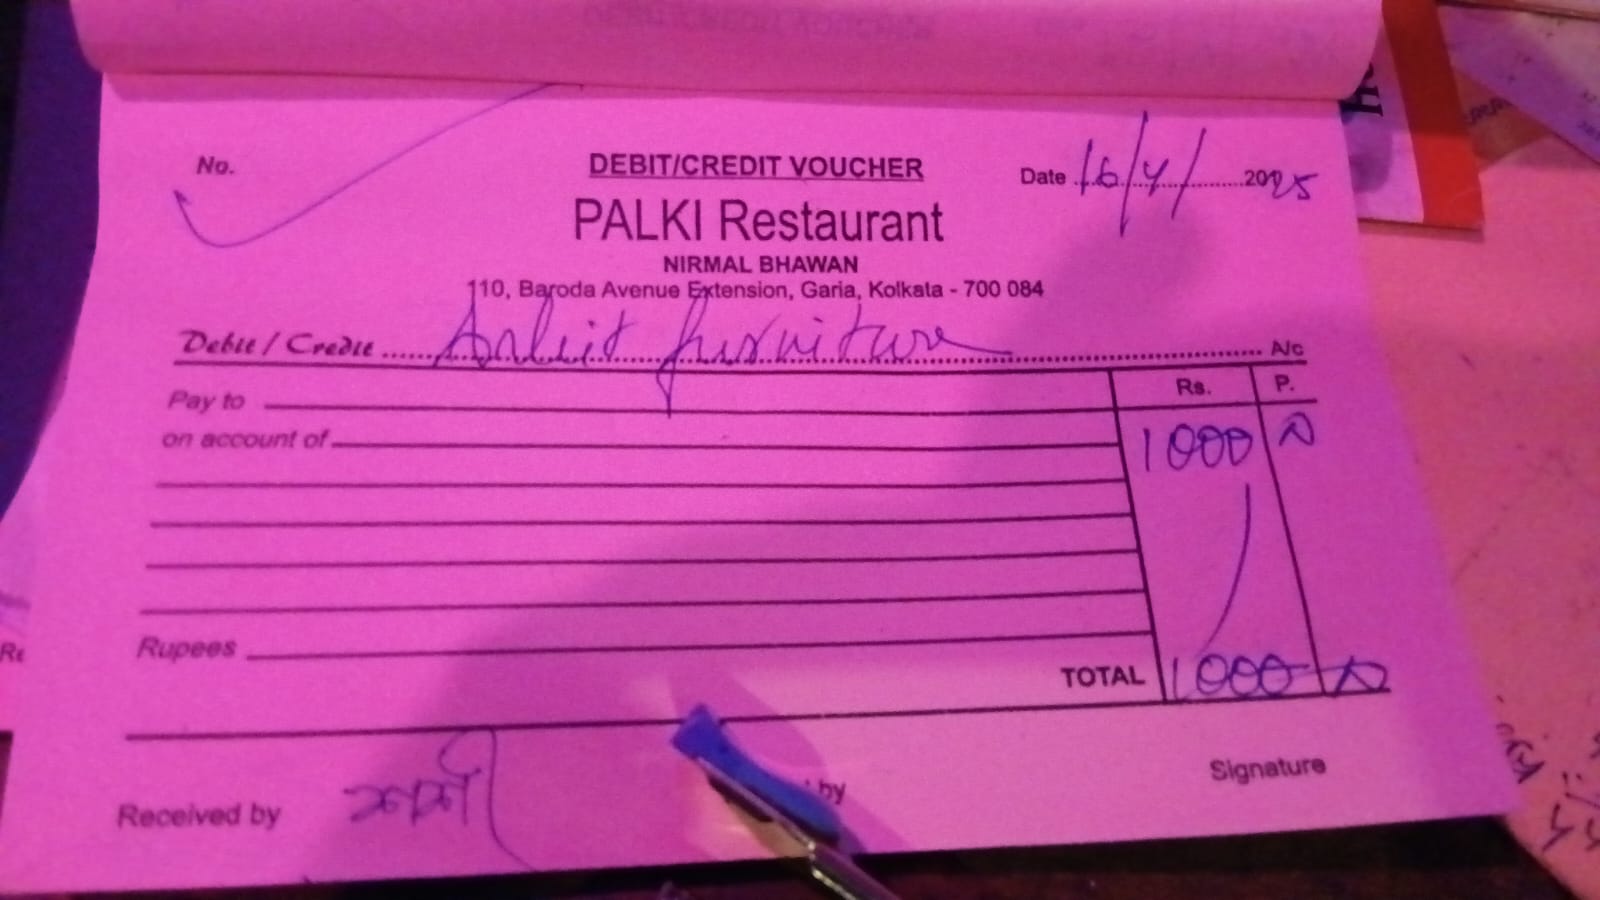 No.
DEBIT/CREDIT VOUCHER
Date 16/4/2025
PALKI Restaurant
NIRMAL BHAWAN
110, Baroda Avenue Extension, Garia, Kolkata - 700 084
Debit / Credit Ankit furniture A/c
Rs. P.
Pay to
on account of
1000
Rupees
TOTAL 1000
Signature
by
Received by